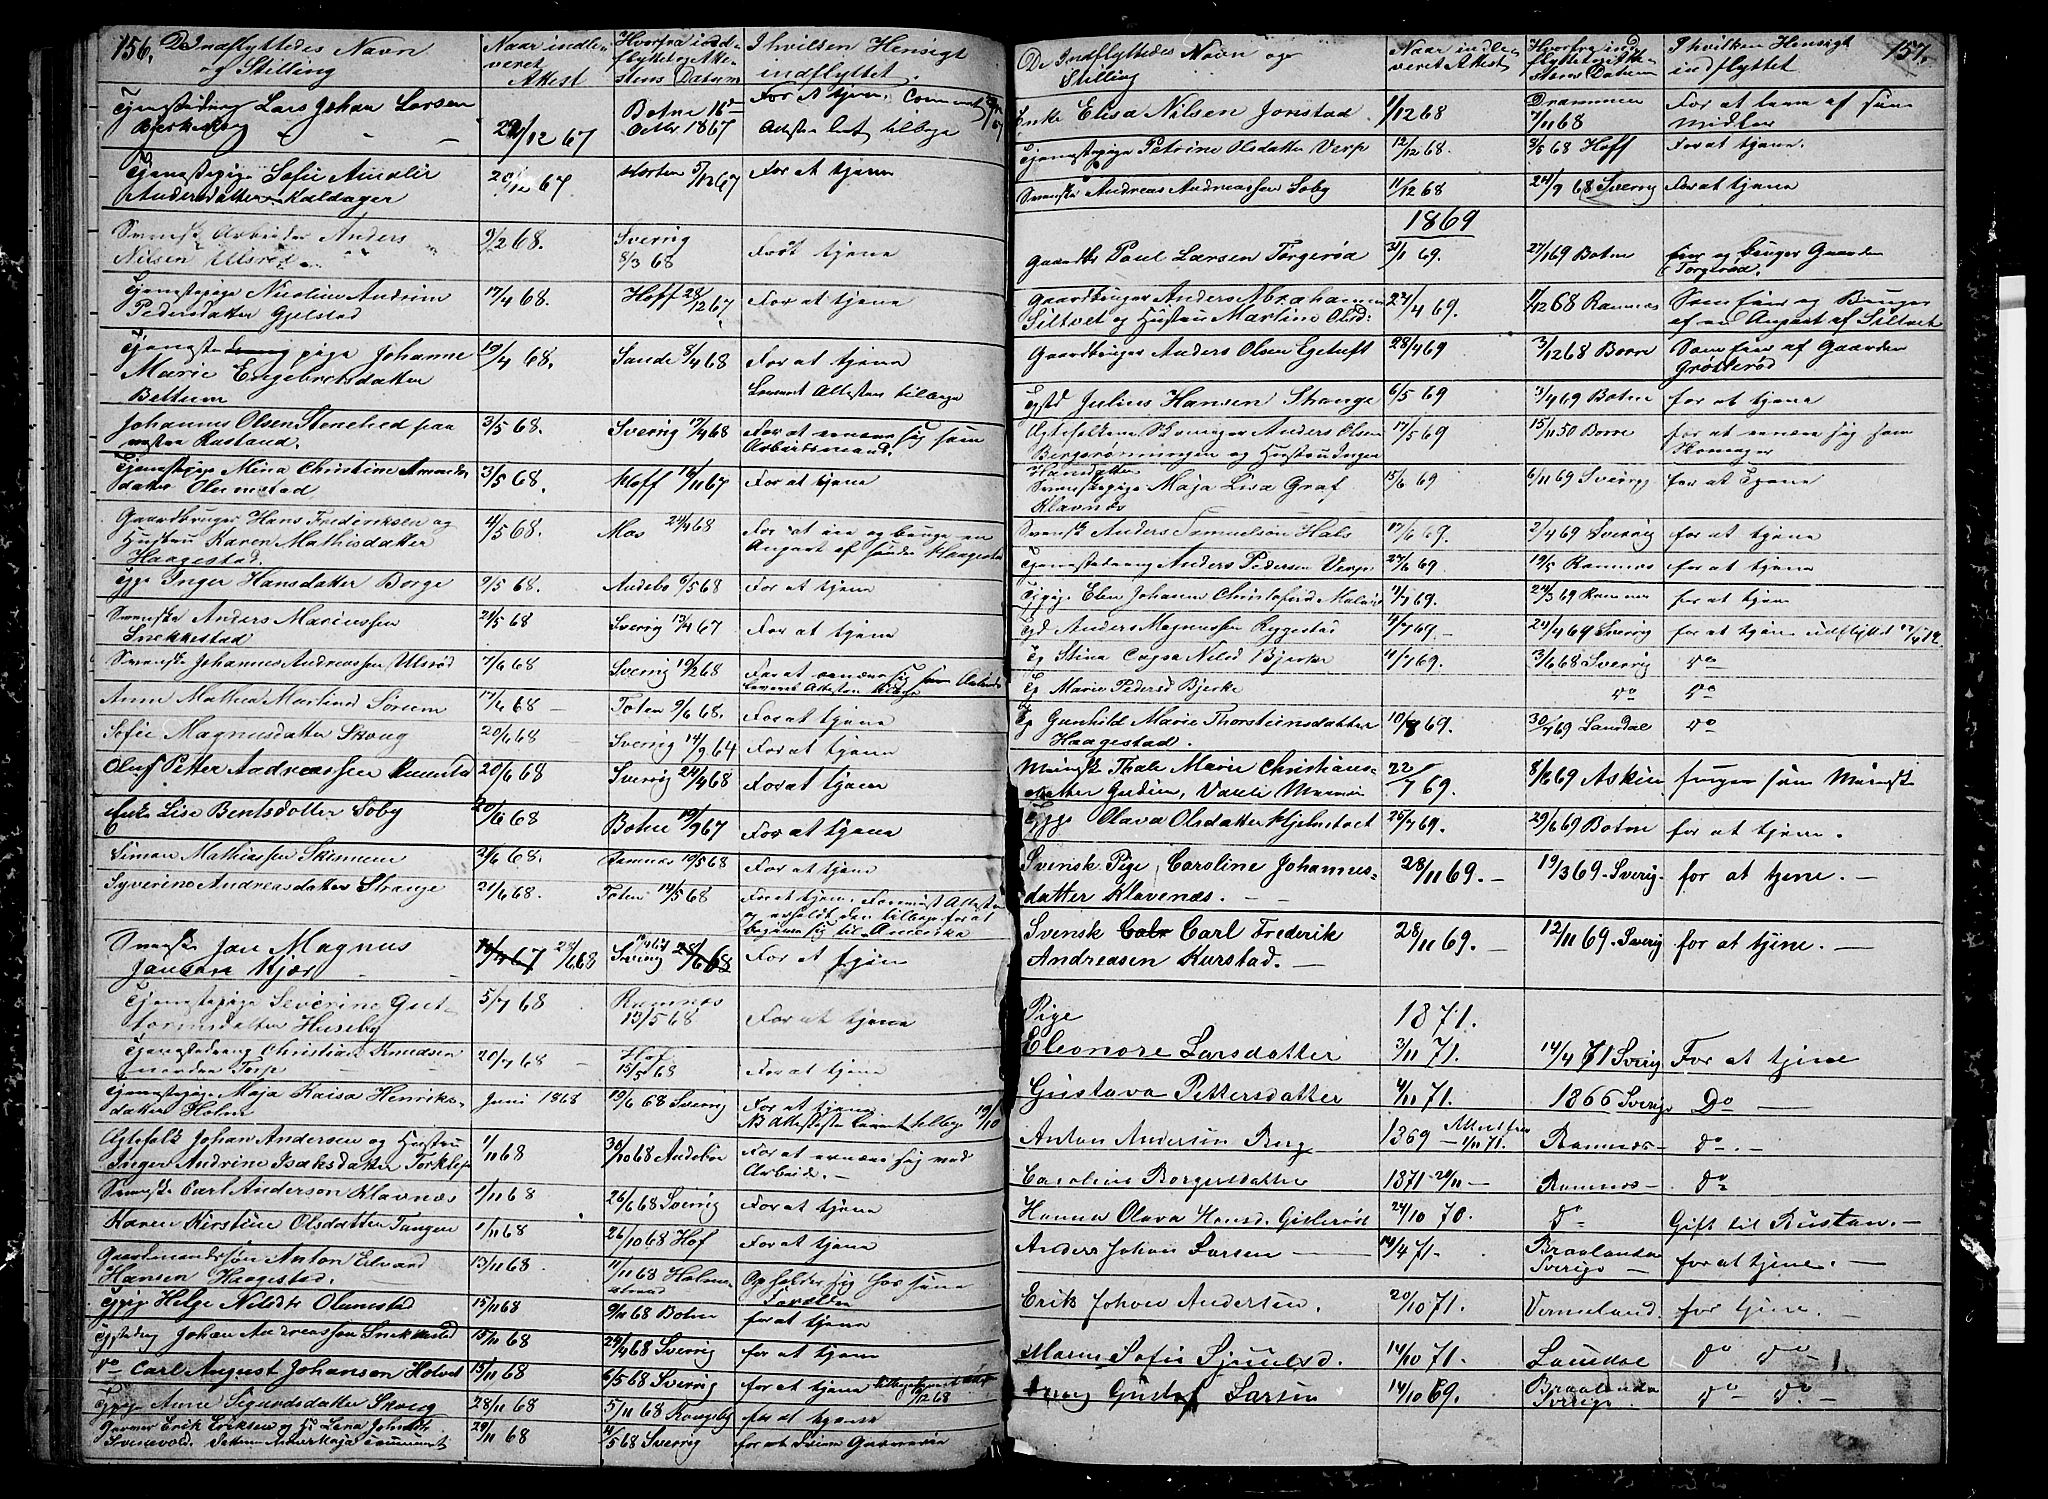 156.
De Indflyttedes Navn og Stilling
Naar indleveret Attest
Hvorfra indflyttet og Attestens Datum
I hvilken Hensigt indflyttet.
Tjenestedreng Lars Johan Larsen 22/12 67 Botne 16de Octbr 1867 For at tjene.
Attesten lev. tilbage
Tjenestepige Sofie Amalie Andersdatter Kaldager 20/12 67 Horten 5/12 67 For at tjene
Svensk Arbeider Anders Nilsen Ulsrød 9/2 68. Sverrig 8/3 68 For at tjene
Tjenestepige Nicoline Andrine Pedersdatter Gjelstad 17/4 68. Hoff 28/12 67 For at tjene
Tjenestepige Johanne Marie Engebretsdatter Bettum 19/4 68. Sande 8/4 68 For at tjene
Leveret Attesten tilbage
Johannes Olsen Stenehed paa Rastaud. 3/5 68. Sverrig 17/4 68 For at ernære sig som Arbeidsmand.
Tjenestepige Mina Christine Olumstad 3/5 68. Hoff 16/11 67 For at tjene
Gaardbruger Hans Frederiksen og Hustru Karen Mathisdatter Haagestad. 4/5 68. Mos 24/4 68 For at eie og bruge en Anpart af søndre Haagestad
Tjpge Inger Hansdatter Borge 9/5 68. Andebo 6/5 68 For at tjene
Svenske Anders Mariussen Snekkestad 21/5 68 Sverrig 13/4 67 For at tjene
Svenske Johannes Andreassen Ulsrød 7/6 68 Sverrig 19/2 68 For at ernære sig som
Leveret Attesten tilbage
Anne Mathea Sørum 17/6 68 Toten 9/6 68. For at tjene
Sofie Magnusdatter Skoug 20/6 68 Sverrig 14/9 64 For at tjene
Oluf Petter Andreassen 20/6 68 Sverrig 24/4 68 For at tjene
Enke Lise Bentsdatter Soby 20/6 68 Botne 19/9 67 For at tjene
Simon Mathiassen Skinnem 21/6 68. Ramnæs 19/5 68 For at tjene
Syverine Andreasdatter Strange 21/6 68. Toten 14/5 68 For at tjene. Attesten og erholdt den tilbage for at begive sig til Amerika
Svenske Jan Magnus Jansen Kjær 28/6 68 Sverrig For at tjene
Tjenestepige Severine Guttormsdatter Huseby 5/7 68 Ramnæs 13/5 68 For at tjene
Tjenestedreng Christian Knudsen Torp 20/7 68 Hof 15/5 68 For at tjene
Tjenestepige Maja Kaisa Henriksdatter Holm Juni 1868 19/6 68 Sverrig For at tjene
NB Attesten tilbage 19/10
Ægtefolk Johan Andersen og Hustru Inger Andrine Isaksdatter Torklep 1/11 68 30/10 68 Andebo For at ernære sig ved Arbeide.
Svenske Carl Anderson Klavnæs 1/11 68 26/6 68 Sverrig For at tjene
Karen Kirstine Olsdatter Tangen 1/11 68 26/10 68 Hof For at tjene
Gaardmandssøn Anton Edvard Hansen Haagestad. 13/11 68 11/11 68 Holmestrand Opholder sig hos sine Forældre
Tjpige Helge Nilsdtr Olumstad 15/11 68 9/11 68 Botne for at tjene
Tjstedreng Johan Andreassen Snekkestad 15/11 68 24/4 68 Sverrig for at tjene
do Carl August Johansen Holvet 15/11 68 6/5 68 Sverrig for at tjene
Tjpige Anne Sigurdsdatter Skoug 28/11 68 5/11 68 for at tjene
Garver Erik Eriksen og H. Lena 29/11 68 11/5 68 Sverrig for at
157.
De Indflyttedes Navn og Stilling
Naar indleveret Attest
Hvorfra ind flyttet og Attestens Datum
I hvilken Hensigt indflyttet
Enke Elisa Nilsen Jonstad 1/12 68 Drammen 7/11 68 For at leve af sine Midler
Tjenestepige Petrine Olsdatter Verp 12/12 68. 3/5 68 Hoff For at tjene.
Svenske Andreas Andreassen Soby 11/12 68 24/9 68 Sverrig For at tjene
1869
Gaardbr Paul Larsen Torgerød 31/1 69. 27/1 69 Botne Eier og bruger Gaarden Torgerød.
Gaardbruger Anders Abrahamsen Siltvet og Hustru Martine Olsd: 24/4 69. 17/12 68 Ramnæs Som Eier og Bruger af en Anpart af Siltvet
Gaardbruger Anders Olsen Egetuft 28/4 69 3/12 68 Borre Som Eier af Gaarden Grøtterød
Tjstd Julius Hansen Strange 6/5 69 3/4 69 Botne for at tjene
Ægtefolkene Skomager Anders Olsen Bergsrønningen og Hustru Inger Hansdatter 17/5 69 15/11 50 Borre for at ernære sig som Skomager
Svenskepige Maja Lisa Graf Klavnæs 15/6 69 6/11 69 Sverrig for at Tjene
Svensk Anders Samuelson Hals 17/6 69. 2/4 69 Sverrig for at tjene
Tjenestedreng Anders Pedersen Verp 27/6 69. 19/5 Ramnæs for at tjene
Tjpige Ellen Johanne Christofersd 11/7 69. 24/3 69 Ramnæs for at tjene
Tjd Anders Magnussen Ryggestad 11/7 69. 24/4 69 Sverrig for at tjene udflyttet
Tj Stina Cajsa Nilsd Bjerke 11/7 69. 3/6 68 Sverrig do
Tj Marie Pedersd Bjerke do do
Tj Gunhild Marie Thorsteinsdatter Haagestad. 10/8 69. 30/7 69 Laurdal do
Thale Marie Christiansdatter 22/7 69. 8/6 69 Asker
Tjpge Olava Olsdatter Hjelmtvet 25/7 69. 29/6 69 Botne for at tjene.
Svensk Pige, Caroline Johannesdatter Klavenæs. 28/11 69. 19/3 69. Sverig. for at tjene.
Svensk Carl Frederik Andreasen Kurstad. 28/11 69. 12/11 69. Sverig for at tjene.
1871.
Pige Eleonore Larsdatter 3/11 71. 14/4 71 Sverig For at tjene
Gustava Pettersdatter 4/11 71. 1866 Sverige Do
Anton Andersen Berg 1869 1/11 71. Ramnæs do.
Caroline Borgersdatter 1871 Ramnæs do
Hanna Olava Hansd. Gislerød 24/10 70. do Gift til Rustan.
Anders Johan Larsen 14/4 71. Braalanda Sverige for at tjene.
Erik Johan Andersen. 20/10 71. Vermeland. for tjene.
Maren Sofie 14/10 71. Laurdal do do
Gustaf Larsen 14/10 69. Braalanda Sverige do do